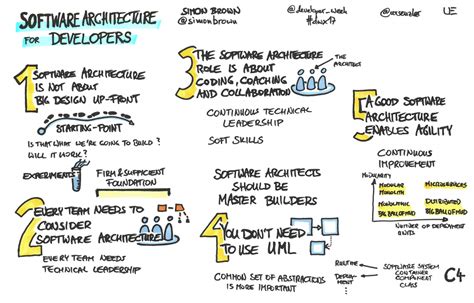 SOFTWARE ARCHITECTURE
FOR DEVELOPERS
SIMON BROWN
@simonbrown
@developer_week
#dwx17
UE
1 SOFTWARE ARCHITECTURE
IS NOT ABOUT
BIG DESIGN UP-FRONT
STARTING-POINT
IS THAT WHAT WE'RE GOING TO BUILD?
WILL IT WORK?
EXPERIMENTS
FIRM & SUFFICIENT
FOUNDATION
2 EVERY TEAM NEEDS TO
CONSIDER
SOFTWARE ARCHITECTURE
EVERY TEAM NEEDS
TECHNICAL LEADERSHIP
3 THE SOFTWARE ARCHITECTURE
ROLE IS ABOUT
CODING, COACHING
AND COLLABORATION
THE
ARCHITECT
CONTINUOUS TECHNICAL
LEADERSHIP
SOFT SKILLS
SOFTWARE ARCHITECTS
SHOULD BE
MASTER BUILDERS
4 YOU DON'T NEED
TO USE UML
COMMON SET OF ABSTRACTIONS
IS MORE IMPORTANT
RUNTIME
DEPLOY-
MENT
SOFTWARE SYSTEM
CONTAINER
COMPONENT
CLASS
C4
5 A GOOD SOFTWARE
ARCHITECTURE
ENABLES AGILITY
CONTINUOUS
IMPROVEMENT
MODULARITY
MODULAR
MONOLITH
MICROSERVICES
MONOLITHIC
BIG BALL OF MUD
DISTRIBUTED
BIG BALL OF MUD
NUMBER OF DEPLOYMENT
UNITS